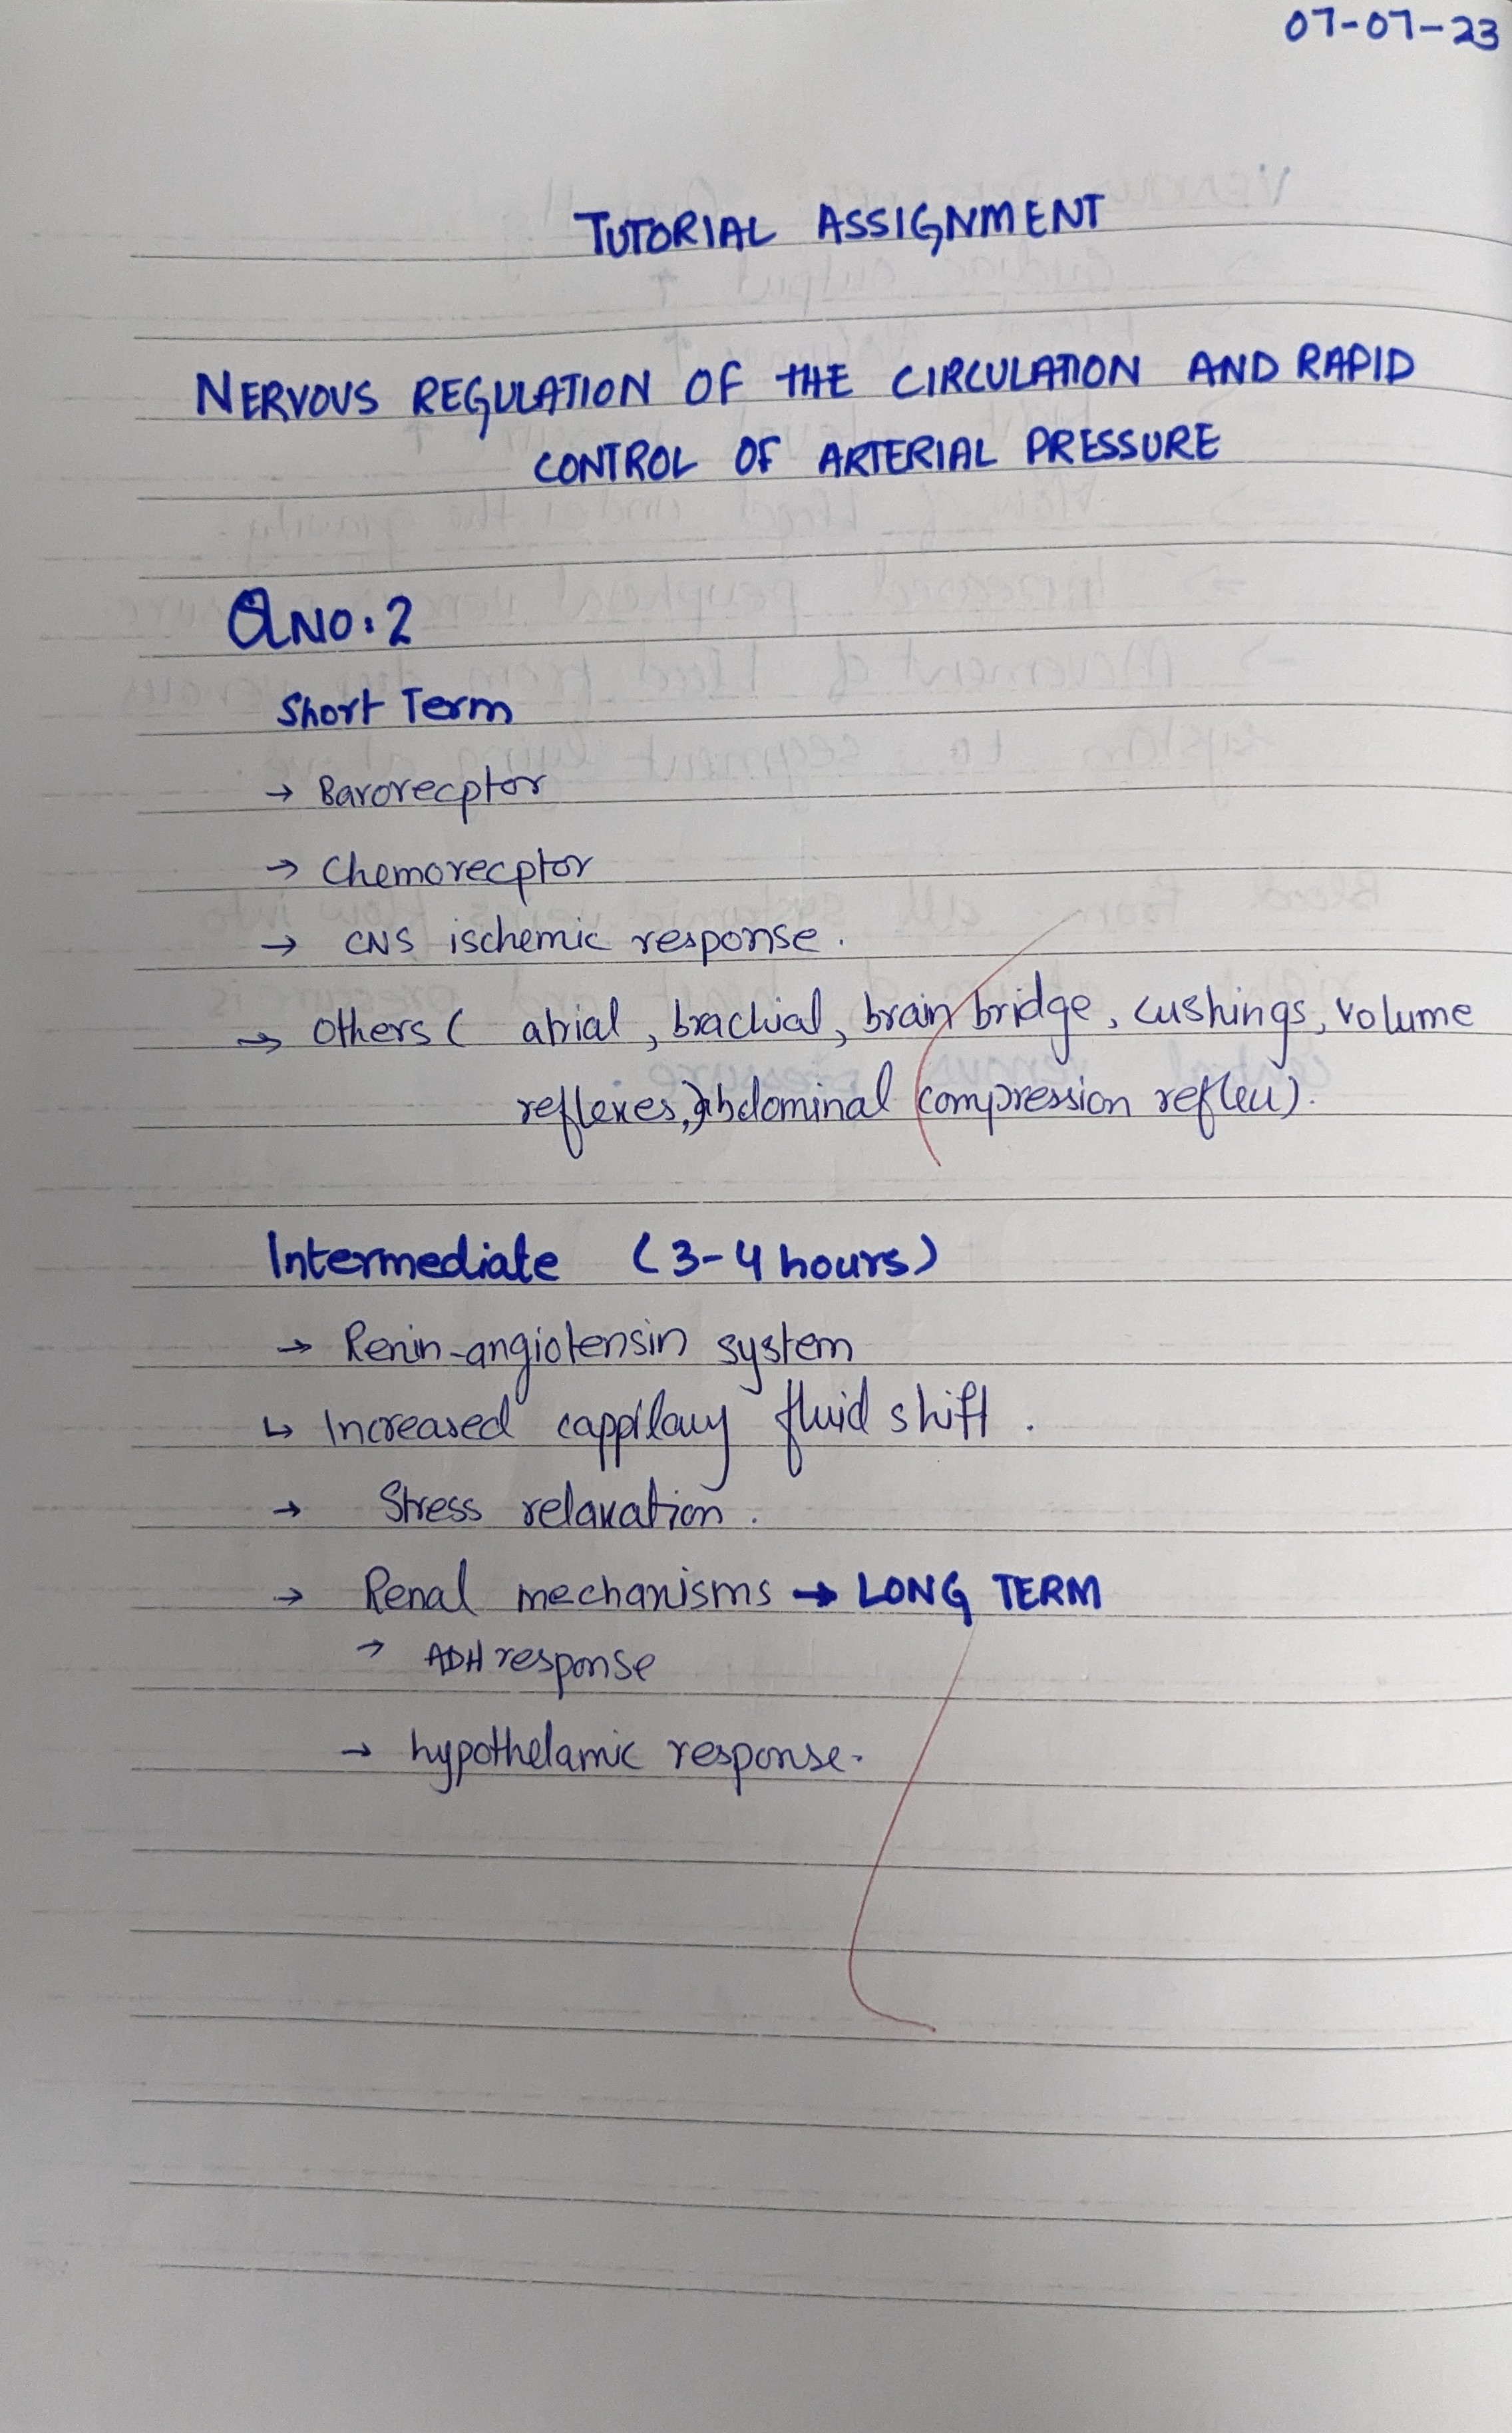 07-07-23
TUTORIAL ASSIGNMENT
NERVOUS REGULATION OF THE CIRCULATION AND RAPID
CONTROL OF ARTERIAL PRESSURE
QNO:2
Short Term
→ Barorecptor
→ Chemorecptor
→ CNS ischemic response.
→ Others ( atrial, brachial, brain bridge, cushings, volume
reflexes, abdominal compression reflex).
Intermediate (3-4 hours)
→ Renin-angiotensin system
↳ Increased cappilary fluid shift.
→ Stress relaxation.
→ Renal mechanisms → LONG TERM
→ ADH response
→ hypothelamic response.